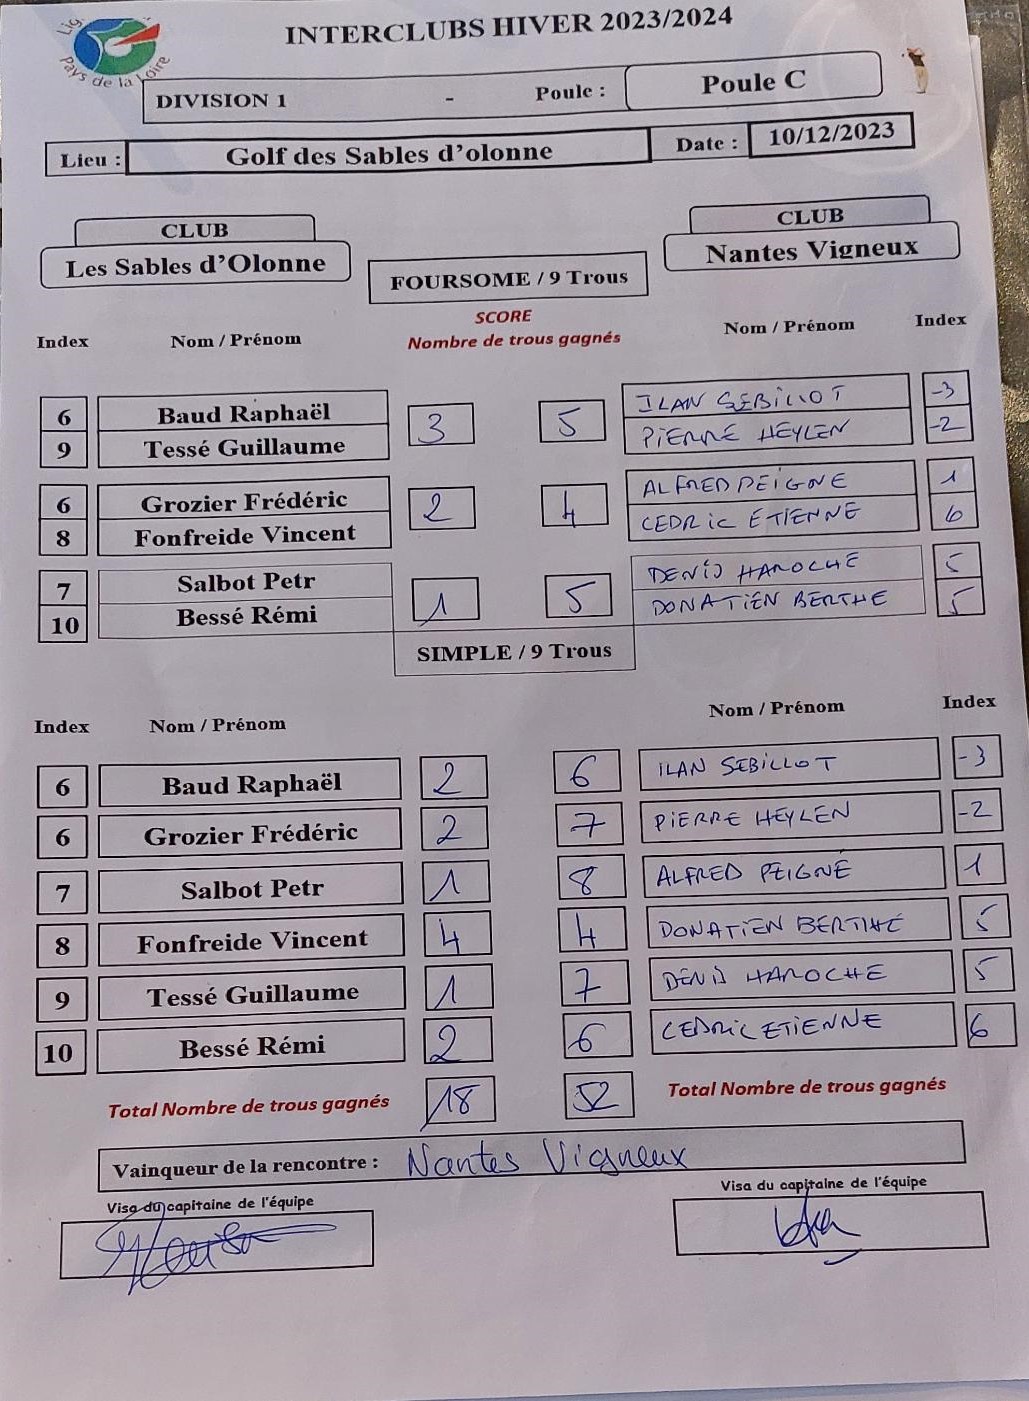 Lig
Pays de la Loire
INTERCLUBS HIVER 2023/2024
DIVISION 1 - Poule : Poule C
Lieu : Golf des Sables d'olonne Date : 10/12/2023
CLUB CLUB
Les Sables d'Olonne Nantes Vigneux
FOURSOME / 9 Trous
SCORE
Index Nom / Prénom Nombre de trous gagnés Nom / Prénom Index
6 Baud Raphaël 3 5 ILAN SEBILLOT -3
9 Tessé Guillaume PIERRE HEYLEN -2
6 Grozier Frédéric 2 4 ALFRED PEIGNE 1
8 Fonfreide Vincent CEDRIC ETIENNE 6
7 Salbot Petr 1 5 DENIS HAROCHE 5
10 Bessé Rémi DONATIEN BERTHE 5
SIMPLE / 9 Trous
Index Nom / Prénom Nom / Prénom Index
6 Baud Raphaël 2 6 ILAN SEBILLOT -3
6 Grozier Frédéric 2 7 PIERRE HEYLEN -2
7 Salbot Petr 1 8 ALFRED PEIGNÉ 1
8 Fonfreide Vincent 4 4 DONATIEN BERTHE 5
9 Tessé Guillaume 1 7 DENIS HAROCHE 5
10 Bessé Rémi 2 6 CEDRIC ETIENNE 6
Total Nombre de trous gagnés 18 52 Total Nombre de trous gagnés
Vainqueur de la rencontre : Nantes Vigneux
Visa du capitaine de l'équipe Visa du capitaine de l'équipe